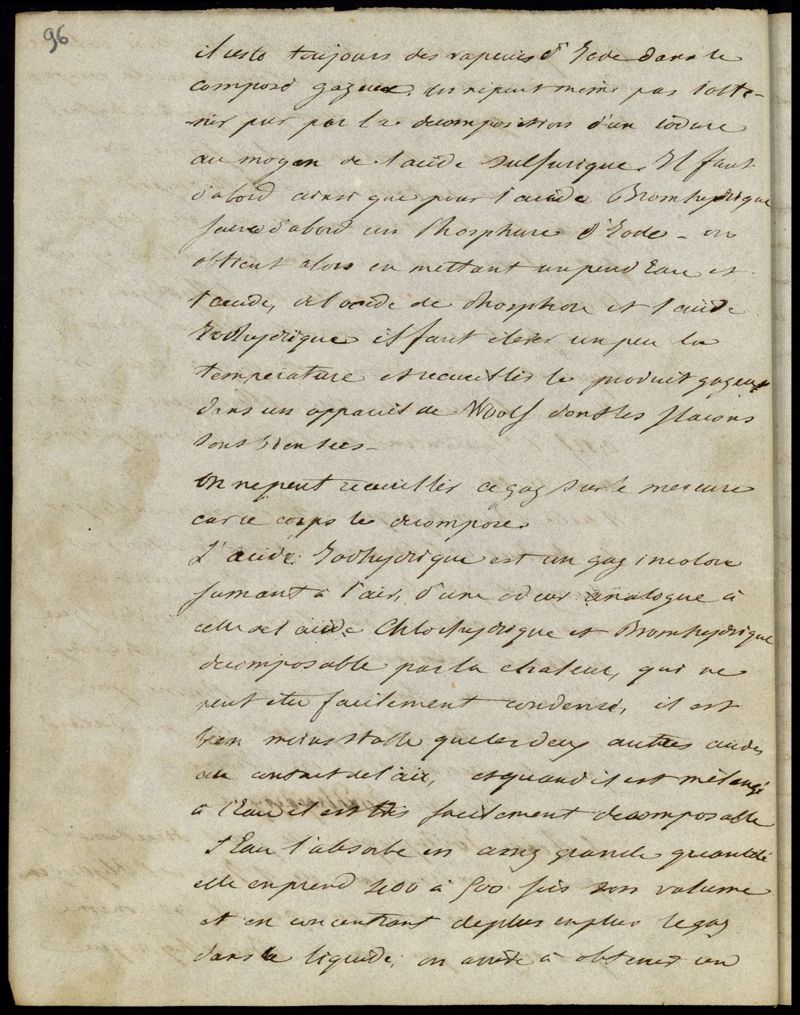 96
il reste toujours des vapeurs d'Iode dans le
composé gazeux. on ne peut même pas l'obte-
-nir pur par la decomposition d'un iodure
au moyen de l'acide sulfurique. Il faut
d'abord ainsi que pour l'acide Bromhydrique
faire d'abord un Phosphure d'Iode - on
obtient alors en mettant un peu d'Eau et
l'acide, de l'acide de Phosphore et l'acide
Iodhydrique il faut élever un peu la
temperature et recueillir le produit gazeux
dans un appareil de Woolf dont les flacons
sont bien secs -
On ne peut recueillir ce gaz sur le mercure
car ce corps le decompose.
L'acide Iodhydrique est un gaz incolore
fumant à l'air, d'une odeur analogue à
celle de l'acide Chlorhydrique et Bromhydrique
decomposable par la chaleur, qui ne
peut etre facilement condensé, il est
bien moins stable que les deux autres acides
au contact de l'air, et quand il est mélangé
à l'Eau il est très facilement decomposable
L'Eau l'absorbe en assez grande quantité
elle en prend 400 à 500 fois son volume
et en concentrant de plus en plus le gaz
dans le liquide, on arrive à obtenir un